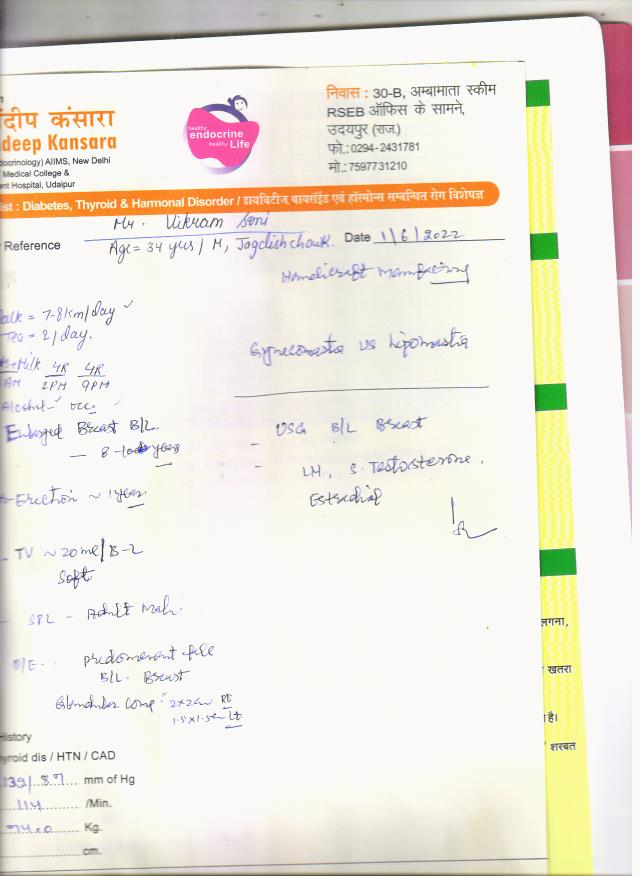 दीप कंसारा
deep Kansara
docrinology) AIIMS, New Delhi
Medical College &
ent Hospital, Udaipur
healthy
endocrine
healthy
Life
निवास : 30-B, अम्बामाता स्कीम
RSEB ऑफिस के सामने,
उदयपुर (राज.)
फो.:0294-2431781
मो.:7597731210
ist : Diabetes, Thyroid & Harmonal Disorder / डायबिटीज, थायरॉईड एवं हॉरमोन्स सम्बन्धित रोग विशेषज्ञ
Mr. Vikram Soni
Reference
Age = 34 yrs / M, Jagdish chowk.
Date 1/6/2022
Handicraft
alk = 7-8km/day
Tea = 2/day.
+Milk 4R 4R
AM 2PM 9PM
Alcohol - occ
Gynecomastia vs Lipomastia
Enlarged Breast B/L.
— 8-10 years
- USG B/L Breast
- LH, S. Testosterone,
Estradiol
Erection ~ 1 year.
- TV ~ 20ml/B-L
Soft.
- SPL - Adult Male.
O/E -
B/L. Breast
Glandular comp: 2x2cm Rt
1.5x1.5cm Lt
History
hyroid dis / HTN / CAD
139/87 mm of Hg
114 /Min.
74.0 Kg.
cm.
लगना,
खतरा
है।
शरबत